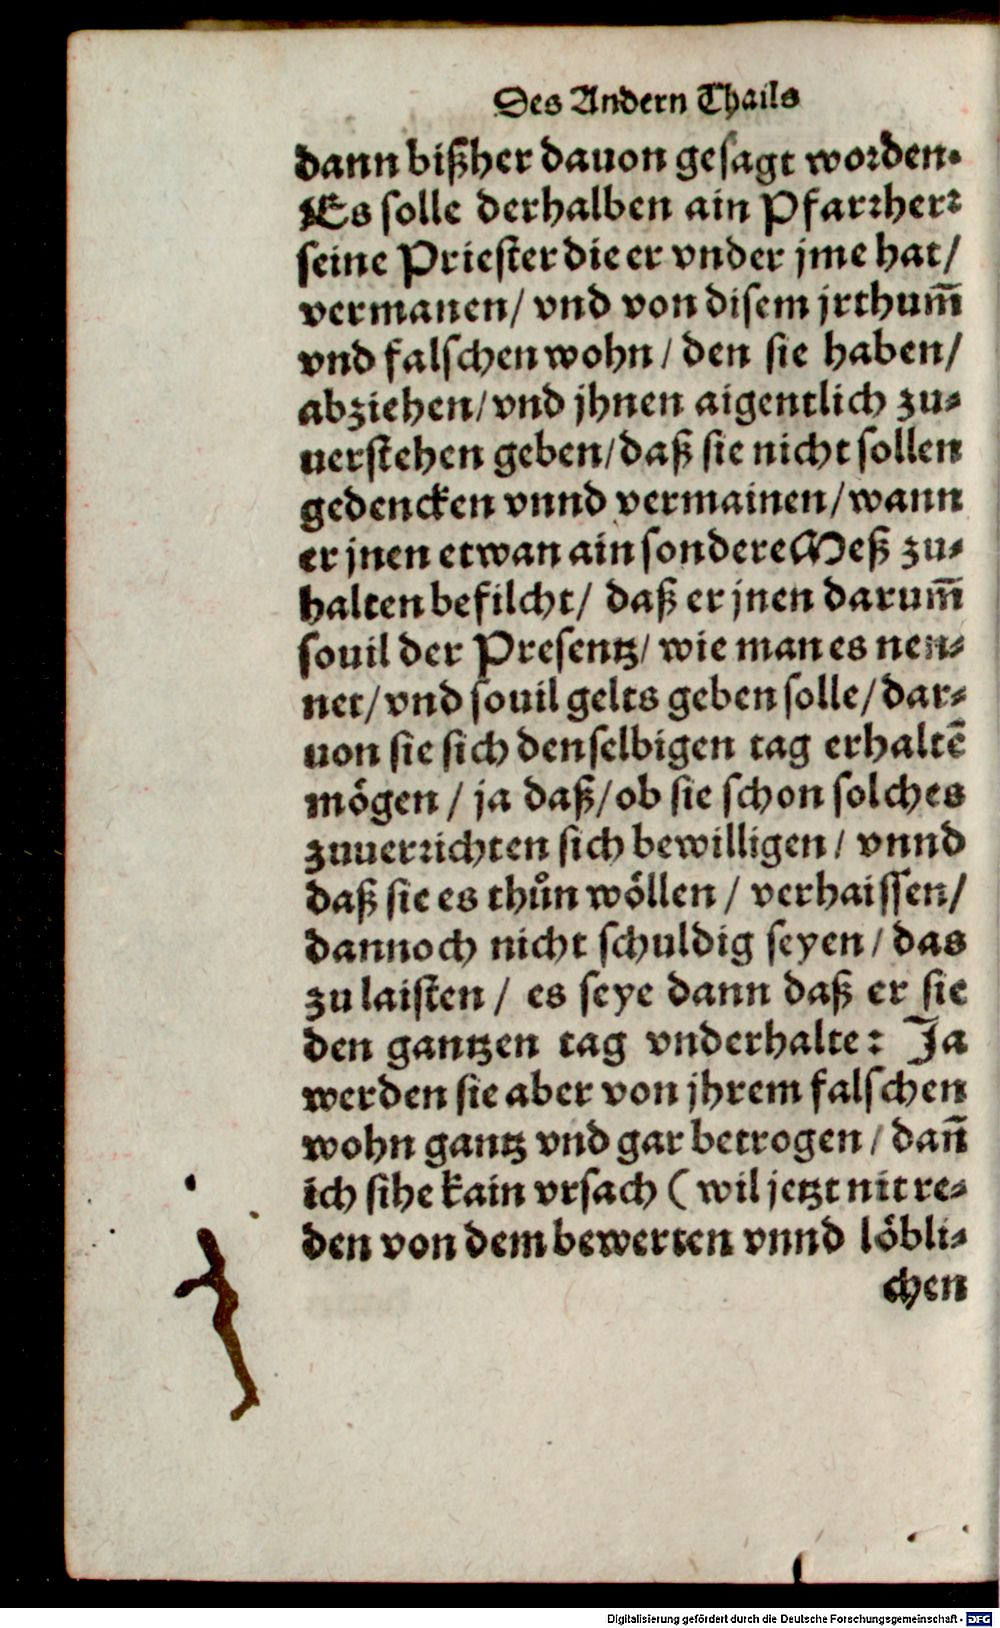 Des Andern Thails
dann bißher dauon gesagt worden.
Es solle derhalben ain Pfarrherr
seine Priester die er vnder jme hat/
vermanen/ vnd von disem jrthum̃
vnd falschen wohn/ den sie haben/
abziehen/ vnd jhnen aigentlich zu-
uerstehen geben/ daß sie nicht sollen
gedencken vnnd vermainen/ wann
er jnen etwan ain sondere Meß zu-
halten befilcht/ daß er jnen darum̃
souil der Presentz/ wie man es nen-
net/ vnd souil gelts geben solle/ dar-
uon sie sich denselbigen tag erhaltẽ
mögen/ ja daß/ ob sie schon solches
zuuerrichten sich bewilligen/ vnnd
daß sie es thůn wöllen/ verhaissen/
dannoch nicht schuldig seyen/ das
zu laisten/ es seye dann daß er sie
den gantzen tag vnderhalte: Ja
werden sie aber von jhrem falschen
wohn gantz vnd gar betrogen/ dañ
ich sihe kain vrsach (wil jetzt nit re-
den von dem bewerten vnnd löbli-
chen
Digitalisierung gefördert durch die Deutsche Forschungsgemeinschaft - DFG